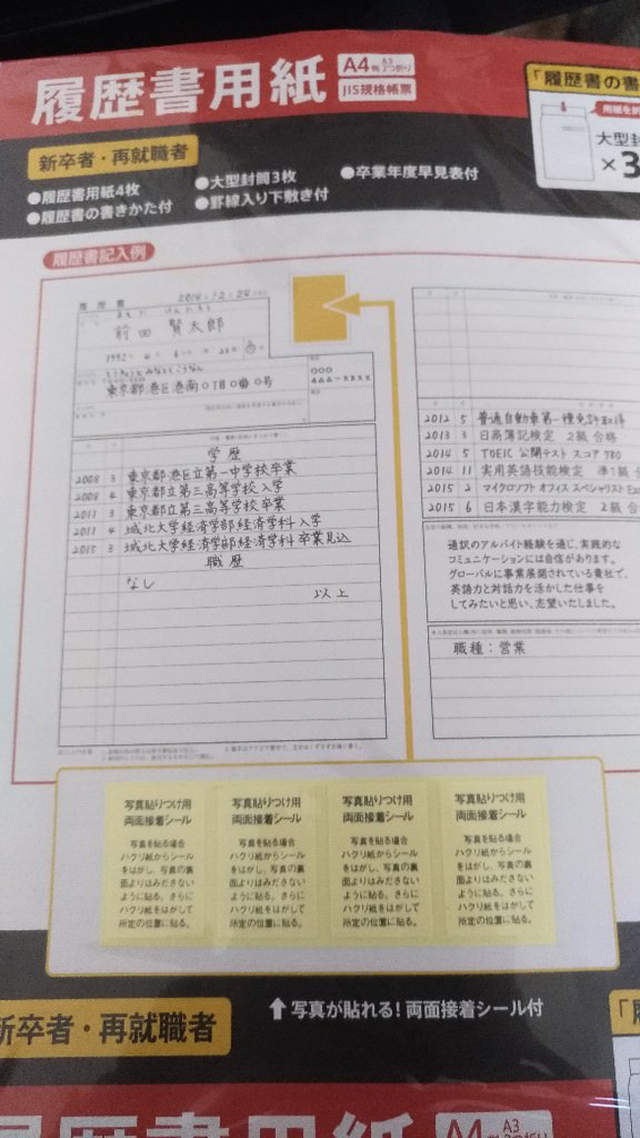 履歴書用紙
A4判 A3 2つ折り
JIS規格帳票
新卒者・再就職者
●履歴書用紙4枚
●大型封筒3枚
●卒業年度早見表付
●履歴書の書きかた付
●罫線入り下敷き付
「履歴書の書
大型封
×3
履歴書記入例
履歴書
2014 12 24
まえだ けんたろう
前田 賢太郎
1992
とうきょうとみなとくこうなん
東京都港区港南○丁目○番○号
○○○
△△△-××××
学歴
2008 3 東京都港区立第一中学校卒業
2008 4 東京都立第三高等学校入学
2011 3 東京都立第三高等学校卒業
2011 4 城北大学経済学部経済学科入学
2015 3 城北大学経済学部経済学科卒業見込
職歴
なし
以上
2012 5 普通自動車第一種免許取得
2013 3 日商簿記検定 2級 合格
2014 5 TOEIC 公開テスト スコア 780
2014 11 実用英語技能検定 準1級
2015 2 マイクロソフト オフィス スペシャリスト
2015 6 日本漢字能力検定 2級
通訳のアルバイト経験を通じ、実践的な
コミュニケーションには自信があります。
グローバルに事業展開されている貴社で、
英語力と対話力を活かした仕事を
してみたいと思い、志望いたしました。
職種：営業
写真貼りつけ用
両面接着シール
写真を貼る場合
ハクリ紙からシール
をはがし、写真の裏
面よりはみださない
ように貼る。さらに
ハクリ紙をはがして
所定の位置に貼る。
写真貼りつけ用
両面接着シール
写真を貼る場合
ハクリ紙からシール
をはがし、写真の裏
面よりはみださない
ように貼る。さらに
ハクリ紙をはがして
所定の位置に貼る。
写真貼りつけ用
両面接着シール
写真を貼る場合
ハクリ紙からシール
をはがし、写真の裏
面よりはみださない
ように貼る。さらに
ハクリ紙をはがして
所定の位置に貼る。
写真貼りつけ用
両面接着シール
写真を貼る場合
ハクリ紙からシール
をはがし、写真の裏
面よりはみださない
ように貼る。さらに
ハクリ紙をはがして
所定の位置に貼る。
写真が貼れる!両面接着シール付
新卒者・再就職者
履歴書用紙
A3